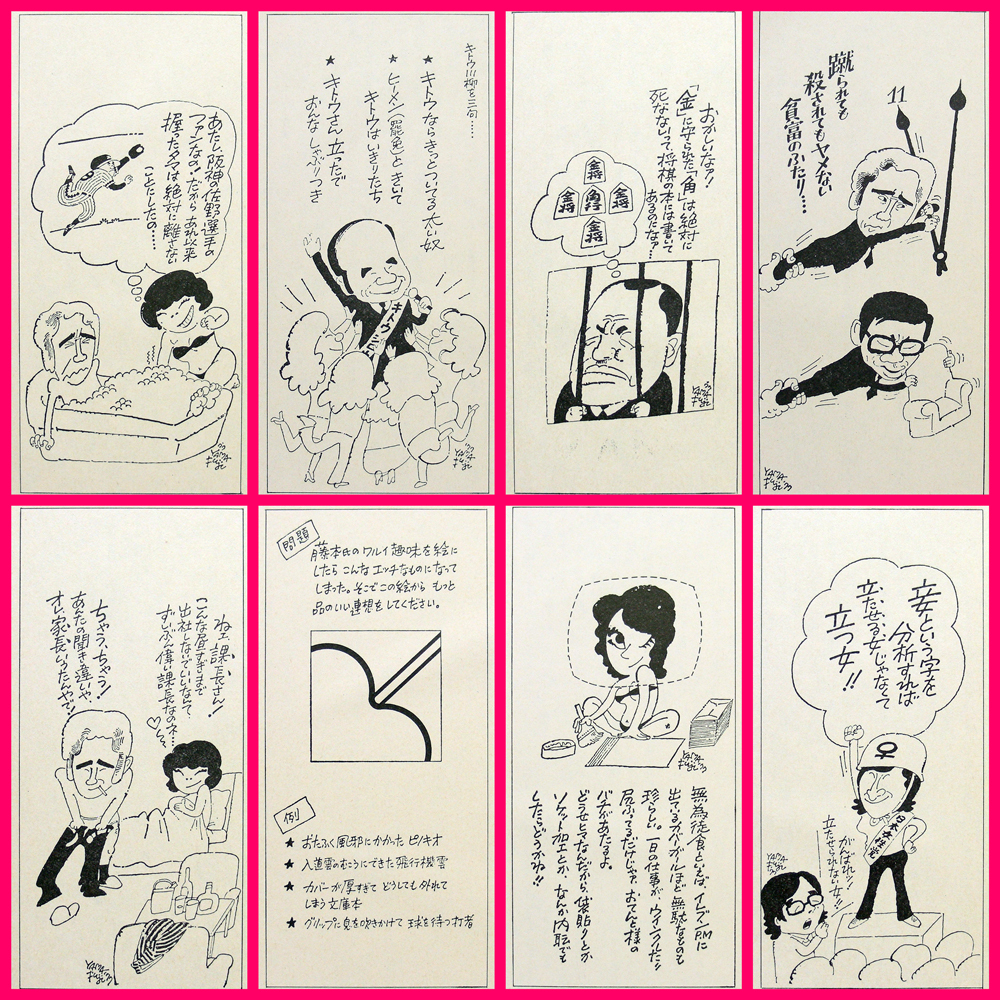 あたし 阪神の佐野選手の
ファンなの！だから あれ以来
握ったタマは 絶対に離さない
ことにしたの……
キトウ川柳を三句……
★ キトウならきっとついてる 太い奴
★ ヒーメン（罷免）ときいて
キトウはいきりたち
★ キトウさん 立ったで
おんな しゃぶりつき
キトウ
おかしいなァ！
「金」に守られた「角」は絶対に
死なないって、将棋の本には書いて
あるのになァ…
金将
金将
角行
金将
金将
蹴られても
殺されてもヤメない
貧富のふたり……
11
ねェ、課長さん！
こんな昼すぎまで
出社しないでいいなんて
ずいぶん偉い課長なのネ…
ちゃう、ちゃう！
あんたの聞き違いや、
オレ、家長いうたんやで！
問題
藤本氏のワルイ趣味を絵に
したら こんなエッチなものになって
しまった。そこでこの絵から もっと
品のいい連想をしてください。
例
★ おたふく風邪にかかった ピノキオ
★ 入道雲のむこうにできた飛行機雲
★ カバーが厚すぎて どうしても外れて
しまう文庫本
★ グリップに息を吹きかけて 球を待つ打者
無為徒食といえば、イレブンPMに
出ているカバーガールほど無駄なものも
珍らしい。一日の仕事が、ウインクしたり
尻ふってるだけじゃァ、おてんと様の
バチがあたるよ。
どうせヒマなんだから、袋貼りとか
ソケット加工とか、なんか内職でも
したらどうかね!!
妾という字を
分析すれば
立たせる女じゃなくて
立つ女!!
日本女性党
がんばれッ！
立たせられない女ッ！